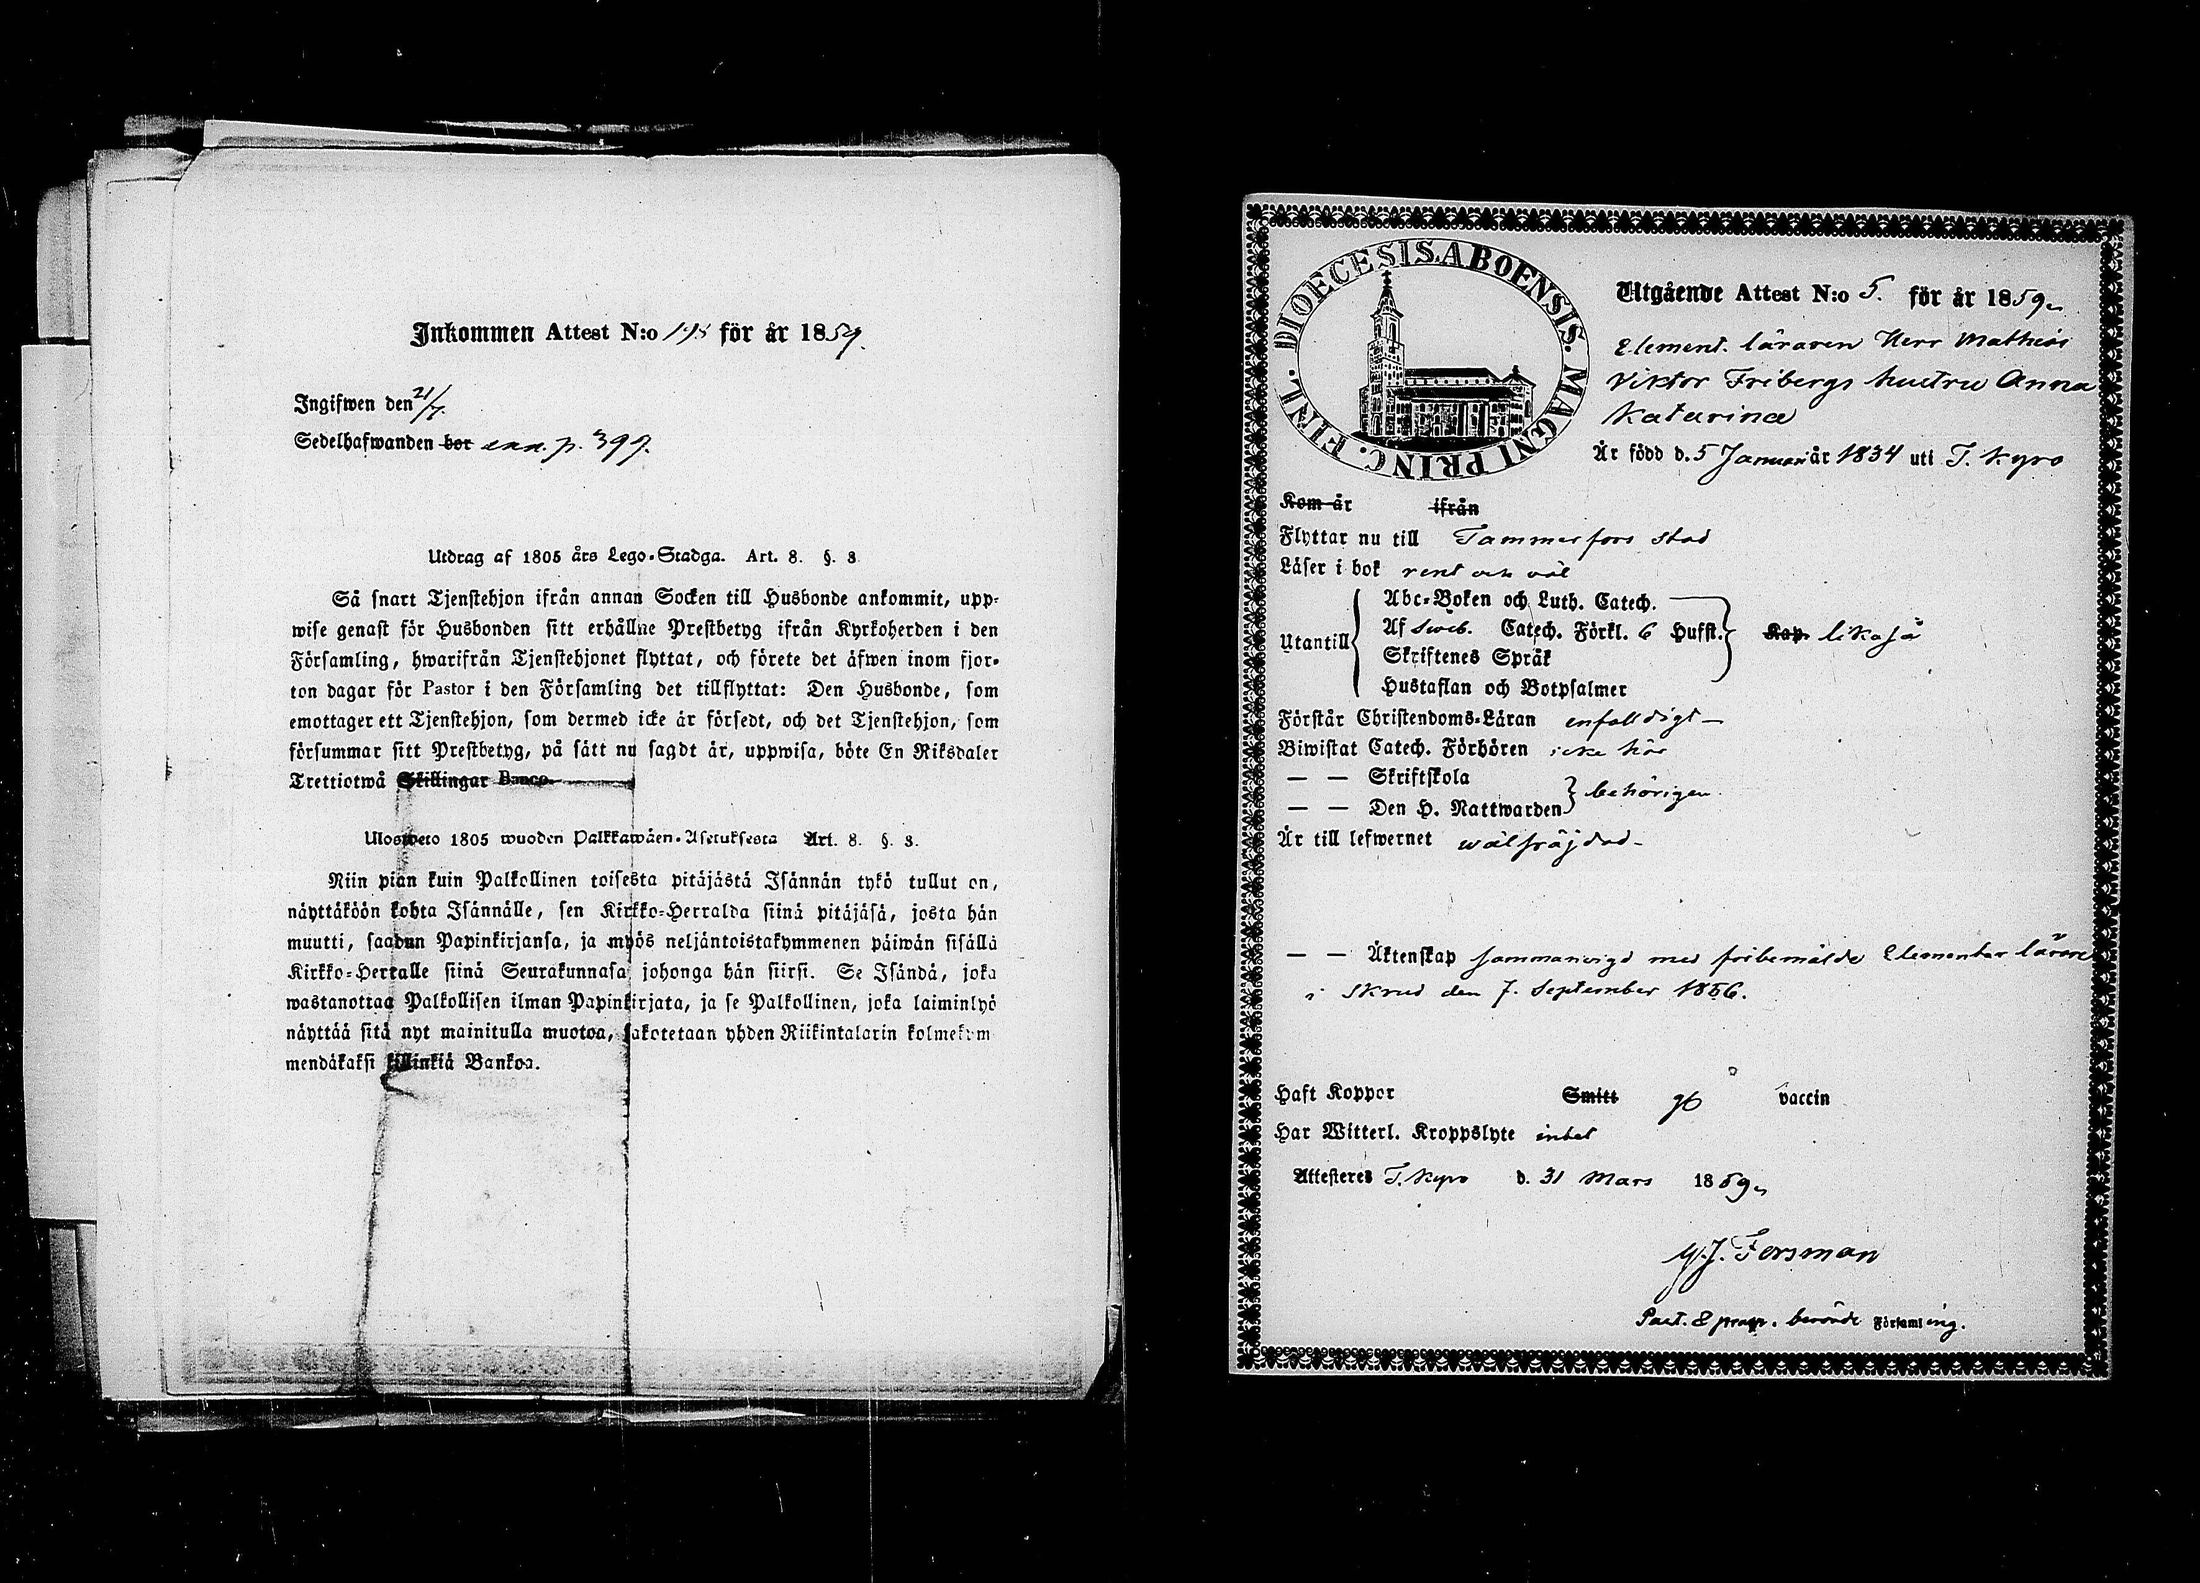 Inkommen Attest N:o för år 1859.
Ingifwen den 21/7.
Sedelhafwanden bor ann. p. 399.
Utdrag af 1805 års Lego-Stadga. Art. 8. §. 3.
Så snart Tjenstehjon ifrån annan Socken till Husbonde ankommit, upp-
wise genast för Husbonden sitt erhållne Prestbetyg ifrån Kyrkoherden i den
Församling, hwarifrån Tjenstehjonet flyttat, och förete det äfwen inom fjor-
ton dagar för Pastor i den Församling det tillflyttat: Den Husbonde, som
emottager ett Tjenstehjon, som dermed icke är försedt, och det Tjenstehjon, som
försummar sitt Prestbetyg, på sätt nu sagdt är, uppwisa, böte En Riksdaler
Trettiotwå Skillingar Banco.
Ulosweto 1805 wuoden Palkkawäen-Asetuksesta Art. 8. §. 3.
Niin pian kuin Palkollinen toisesta pitäjästä Isännän tykö tullut on,
näyttäköön kohta Isännälle, sen Kirkko-Herralda siinä pitäjäsä, josta hän
muutti, saadun Papinkirjansa, ja myös neljäntoistakymmenen päiwän sisällä
Kirkko-Herralle siinä Seurakunnasa johonga hän siirsi. Se Isändä, joka
wastanottaa Palkollisen ilman Papinkirjata, ja se Palkollinen, joka laiminlyö
näyttää sitä nyt mainitulla muotoa, sakotetaan yhden Riikintalarin kolmekym
mendäkaksi killinkiä Bankoa.
DIOECESIS ABOENSIS. MAGNI PRINC. FINL.
Utgående Attest N:o 5. för år 1859.
Element. läraren Herr Mathias
Viktor Fribergs hustru Anna
Katarina
Är född d. 5 Januari år 1834 uti T. Kyro
Kom år ifrån
Flyttar nu till Tammerfors stad
Läser i bok rent och väl
Utantill
Abc-Boken och Luth. Catech.
Af Sweb. Catech. Förkl. 6 Hufst. Kap. likaså
Skriftenes Språk
Hustaflan och Botpsalmer
Förstår Christendoms-Läran enfalldigt
Biwistat Catech. Förhören icke här
— — Skriftskola
— — Den H. Nattwarden behörigen
Är till lefwernet wälfräjdad
— — Äktenskap sammanvigd med förbemälde Elementar lärare
i Skrud den 7. September 1856.
Haft Koppor Smitt vaccin
Har Witterl. Kroppslyte intet
Attesteres T. Kyro d. 31 Mars 1859
Forsman
Past. & præp. berörde Församling.